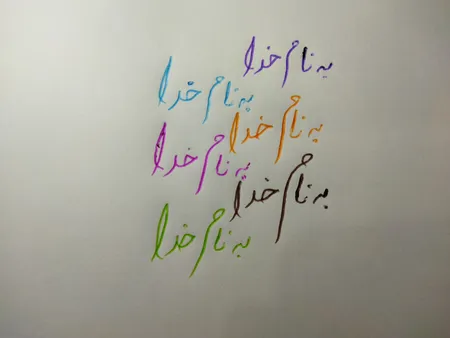 به نام خدا
به نام خدا
به نام خدا
به نام خدا
به نام خدا
به نام خدا